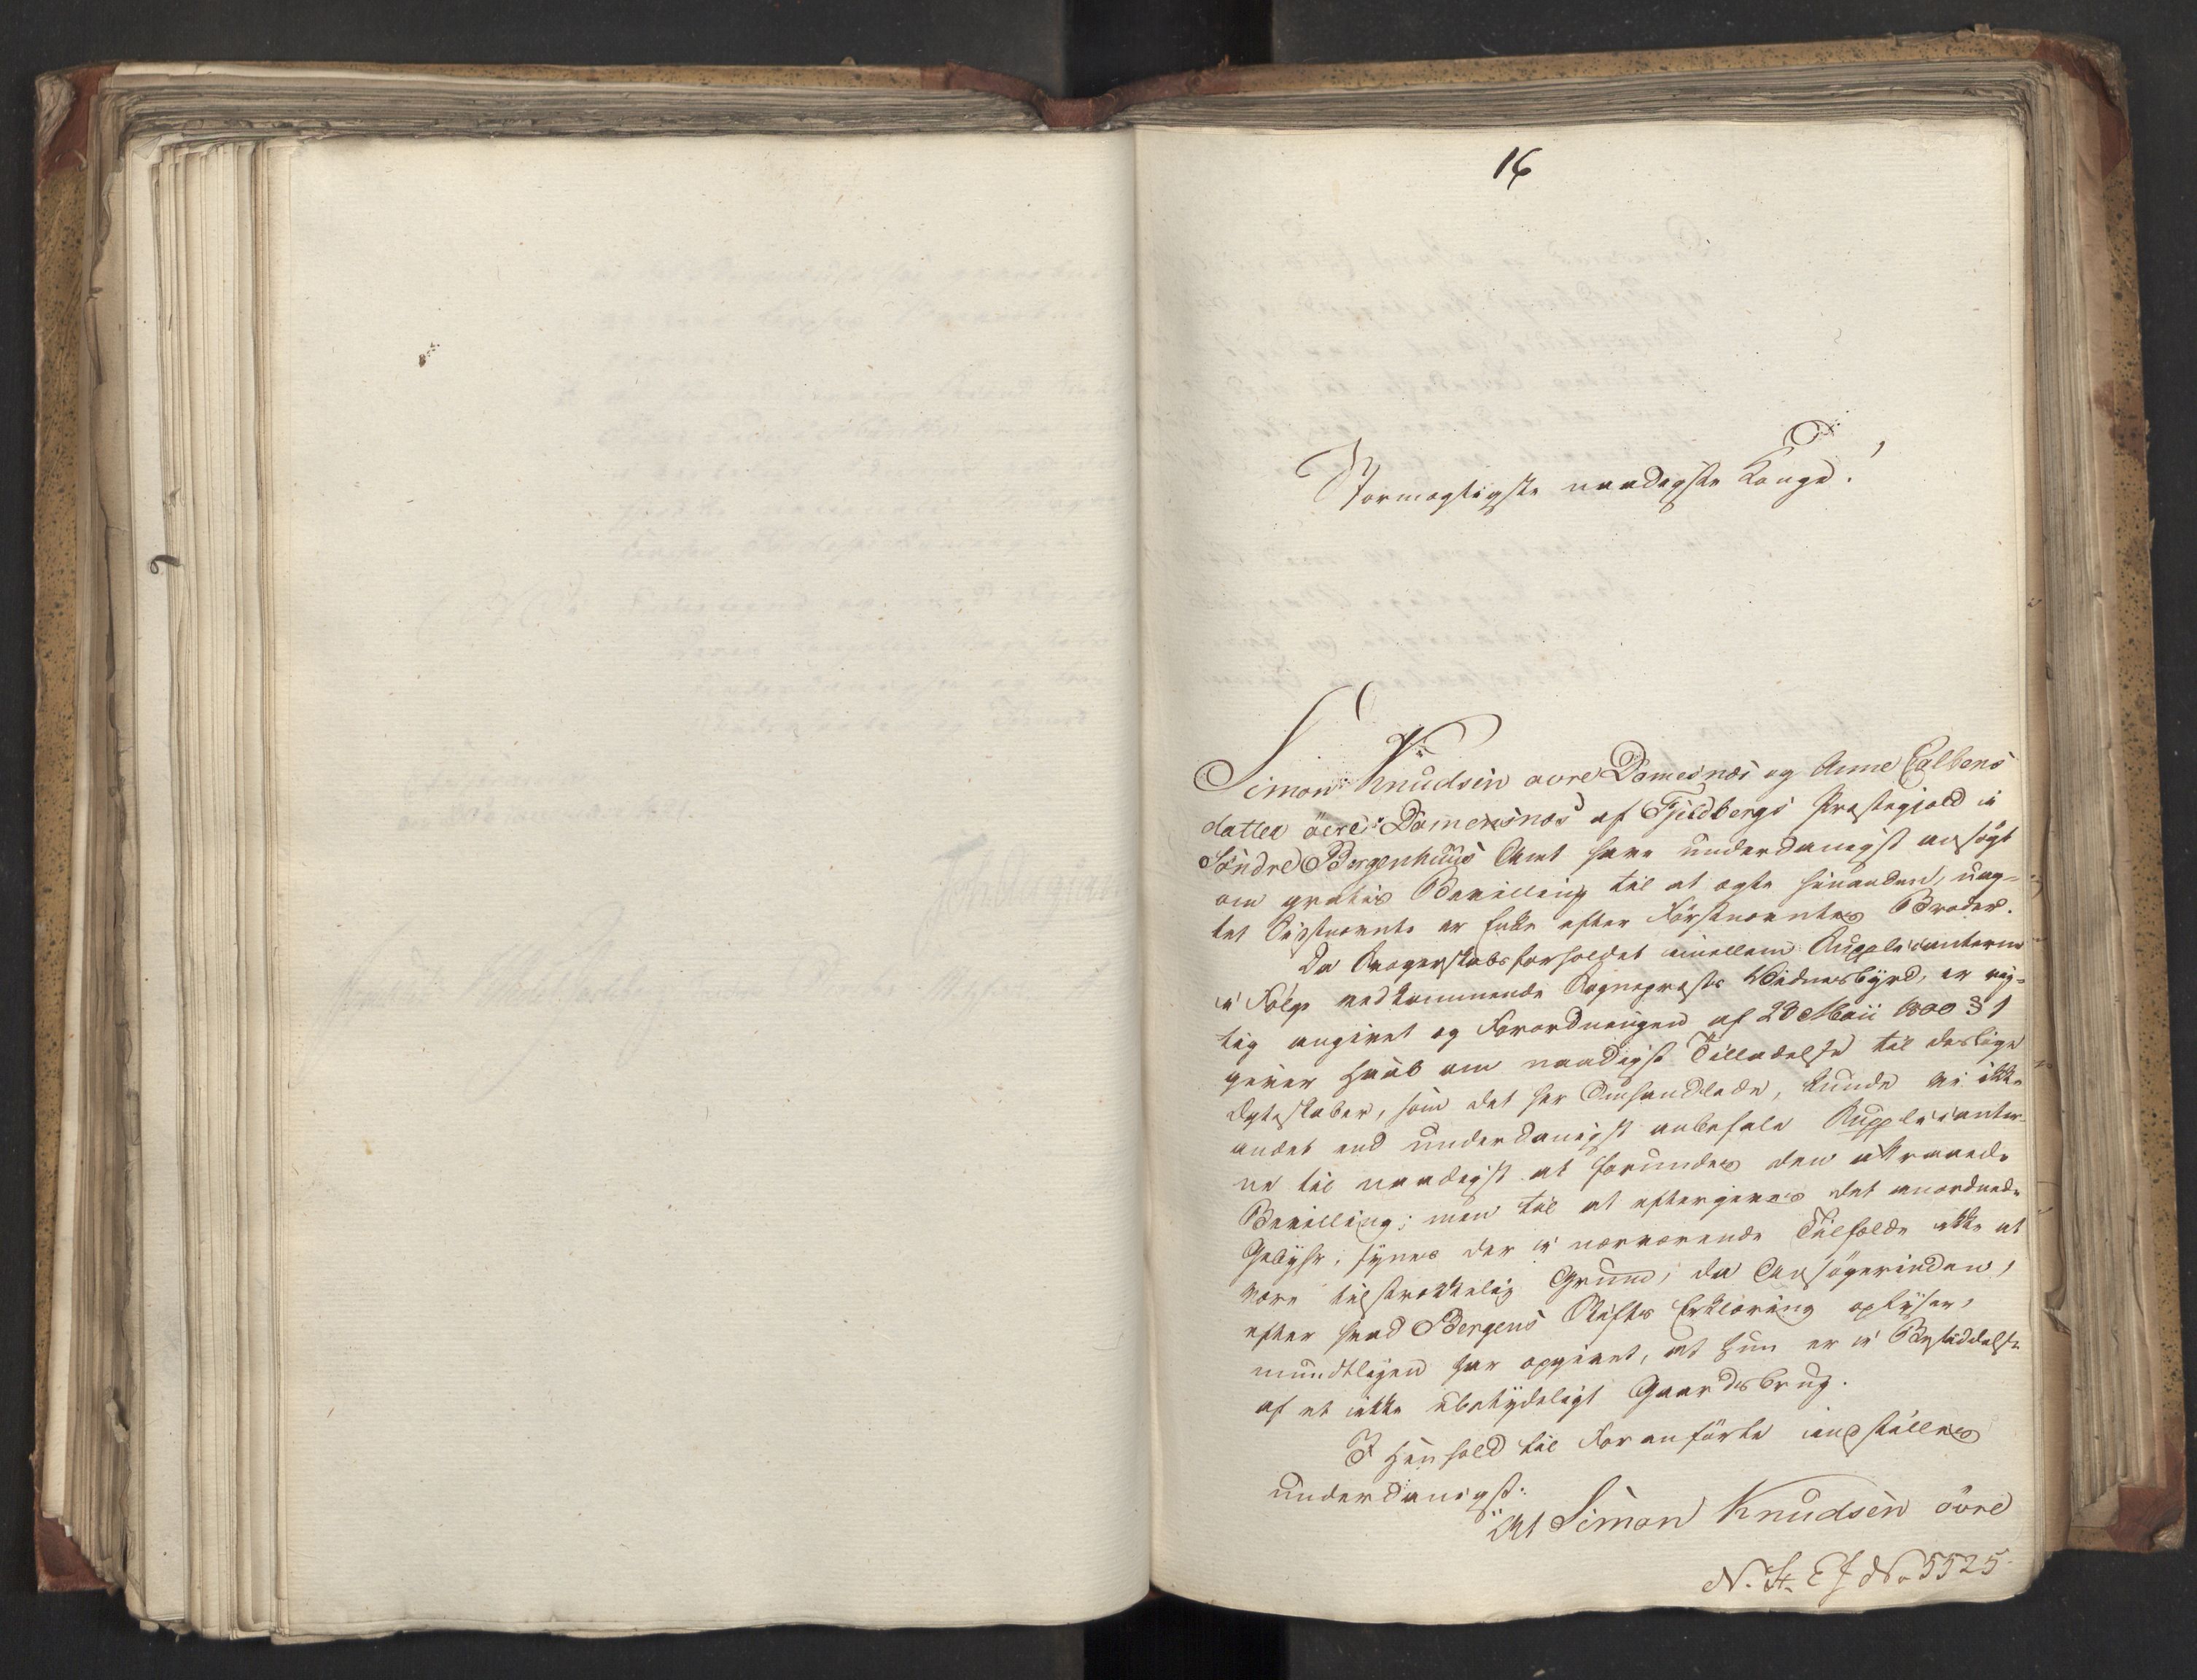 16
Stormægtigste naadigste Konge!
Simon Knudsen øvre Damesnæs og Anne Colbens
datter øvre Damesnæs af Fjeldbergs Præstegjeld i
Søndre Bergenhuus Amt have underdanigst ansøgt
om gratis Bevilling til at ægte hinanden, uag-
tet Sidstnævnte er Enke efter Førstnævntes Broder.
Da Svogerskabsforholdet imellem Supplicanterne
i Følge vedkommende Sognepræsts Vidnesbyrd, er rig-
tig angivet og Forordningen af 23 Maii 1800 § 1
giver Haab om naadigst Tilladelse til deslige
Ægteskaber, som det her Omhandlede, kunde vi ikke
andet end underdanigst anbefale Supplicanter-
ne til naadigst at forundes den attraaede
Bevilling; men til at eftergives det anordnede
Gebyhr, synes der i nærværende Tilfælde ikke at
være tilstrækkelig Grund, da Ansøgerinden,
efter hvad Bergens Stifts Erklæring oplyser,
mundtligen har opgivet, at hun er i Besiddelse
af et ikke ubetydeligt Gaardsbrug.
I Henhold til Foranførte indstilles
underdanigst:
At Simon Knudsen øvre
N. St. E J No 5525.